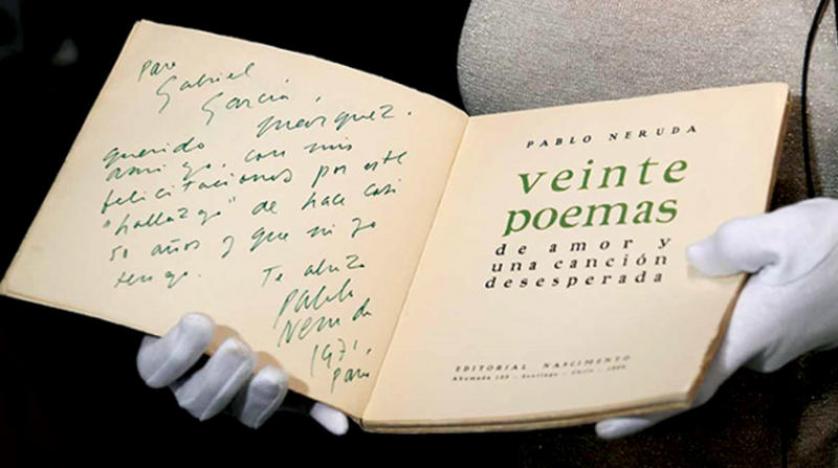 Para
Gabriel
García
Márquez.
querido
amigo, con mis
felicitaciones por este
"hallazgo" de hace casi
50 años y que ni yo
tengo.
Te abraza
Pablo
Neruda
1971,
Paris
PABLO NERUDA
veinte
poemas
de amor y
una canción
desesperada
EDITORIAL NASCIMENTO
Ahumada 125 - Santiago - Chile